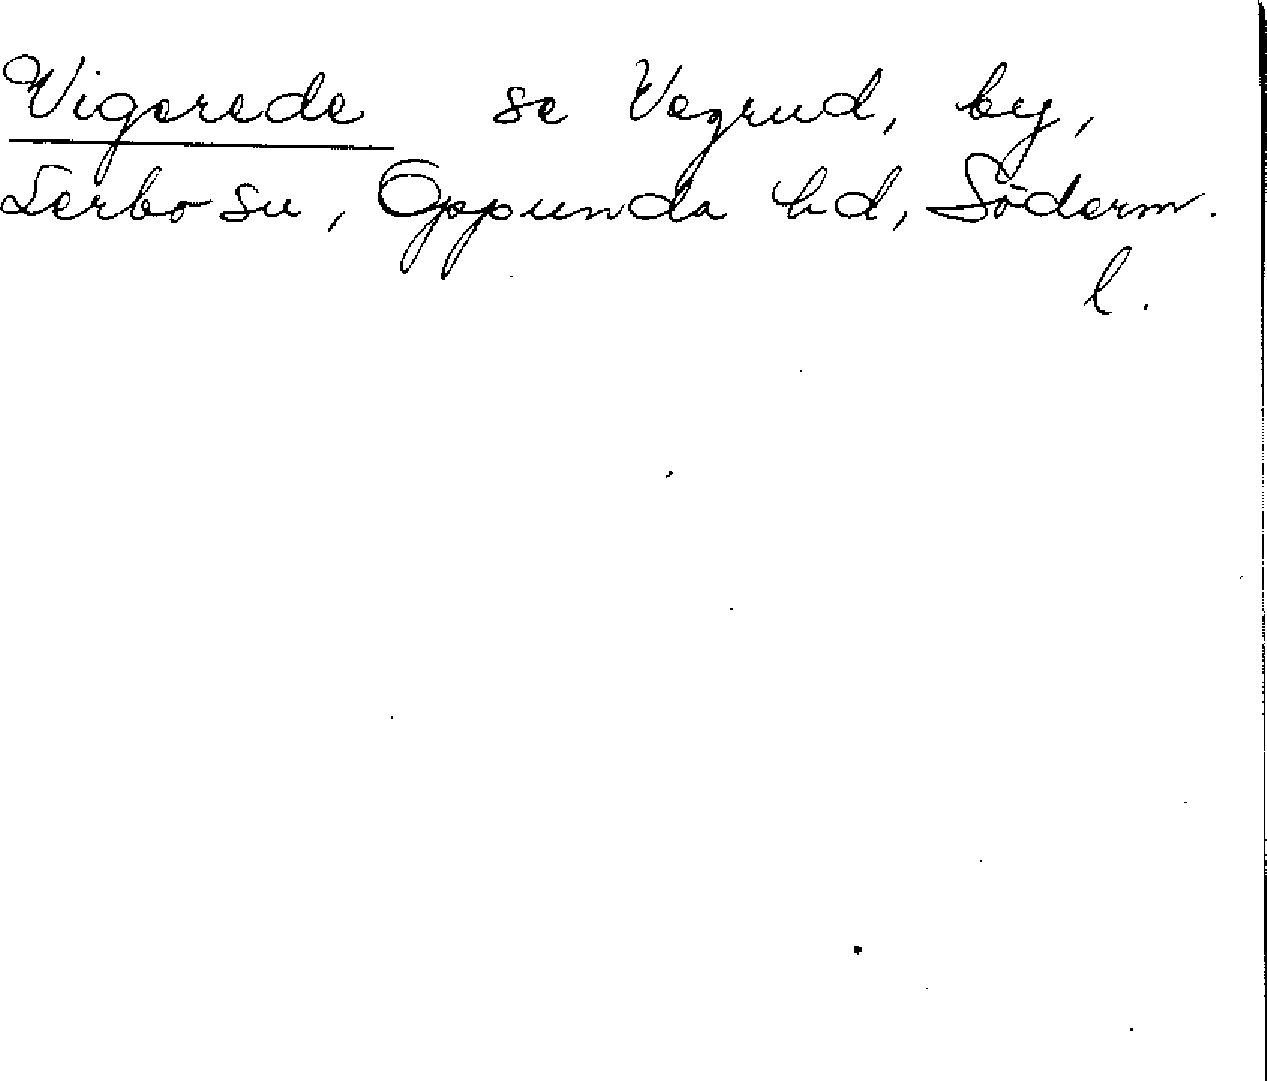 Vigerede se Vegrud, by,
Lerbo sn, Oppunda hd, Söderm.
l.